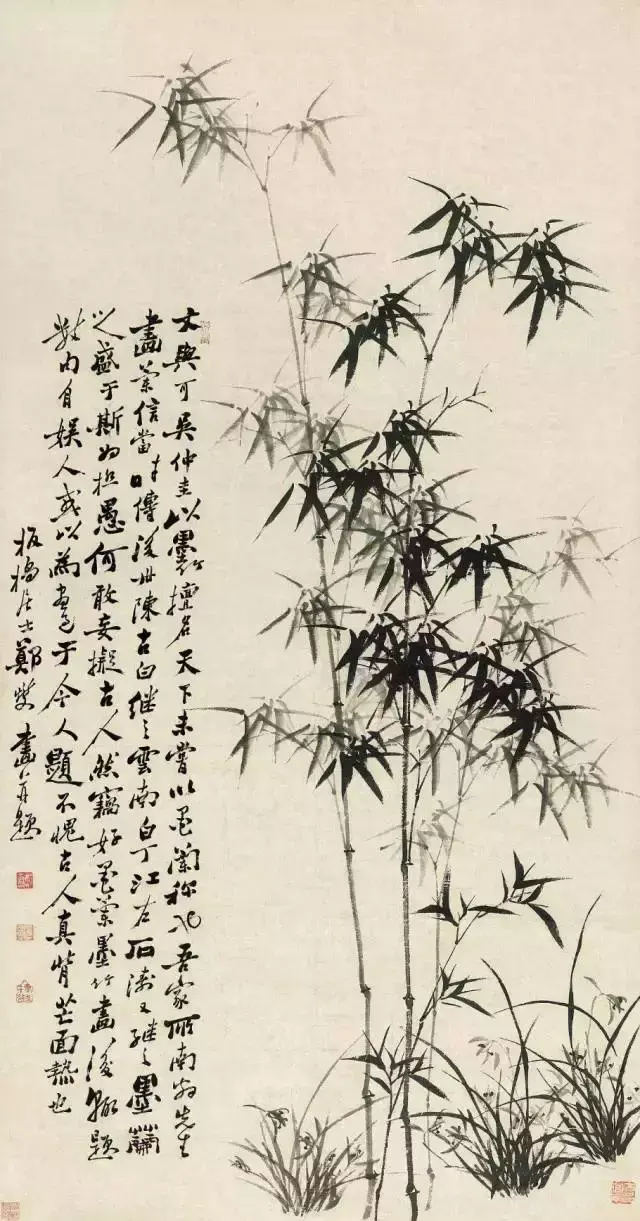 文與可吳仲圭以墨竹擅名天下未嘗以墨蘭稱也吾家所南翁先生
畫蘭信當時傳後世陳古白繼之雲南白丁江左石濤又繼之墨蘭
之盛于斯為極愚何敢妄擬古人然竊好墨蘭墨竹畫後輒題
數自娛人或以為畫于今人題不愧古人真背芒面熱也
板橋居士鄭燮畫并題